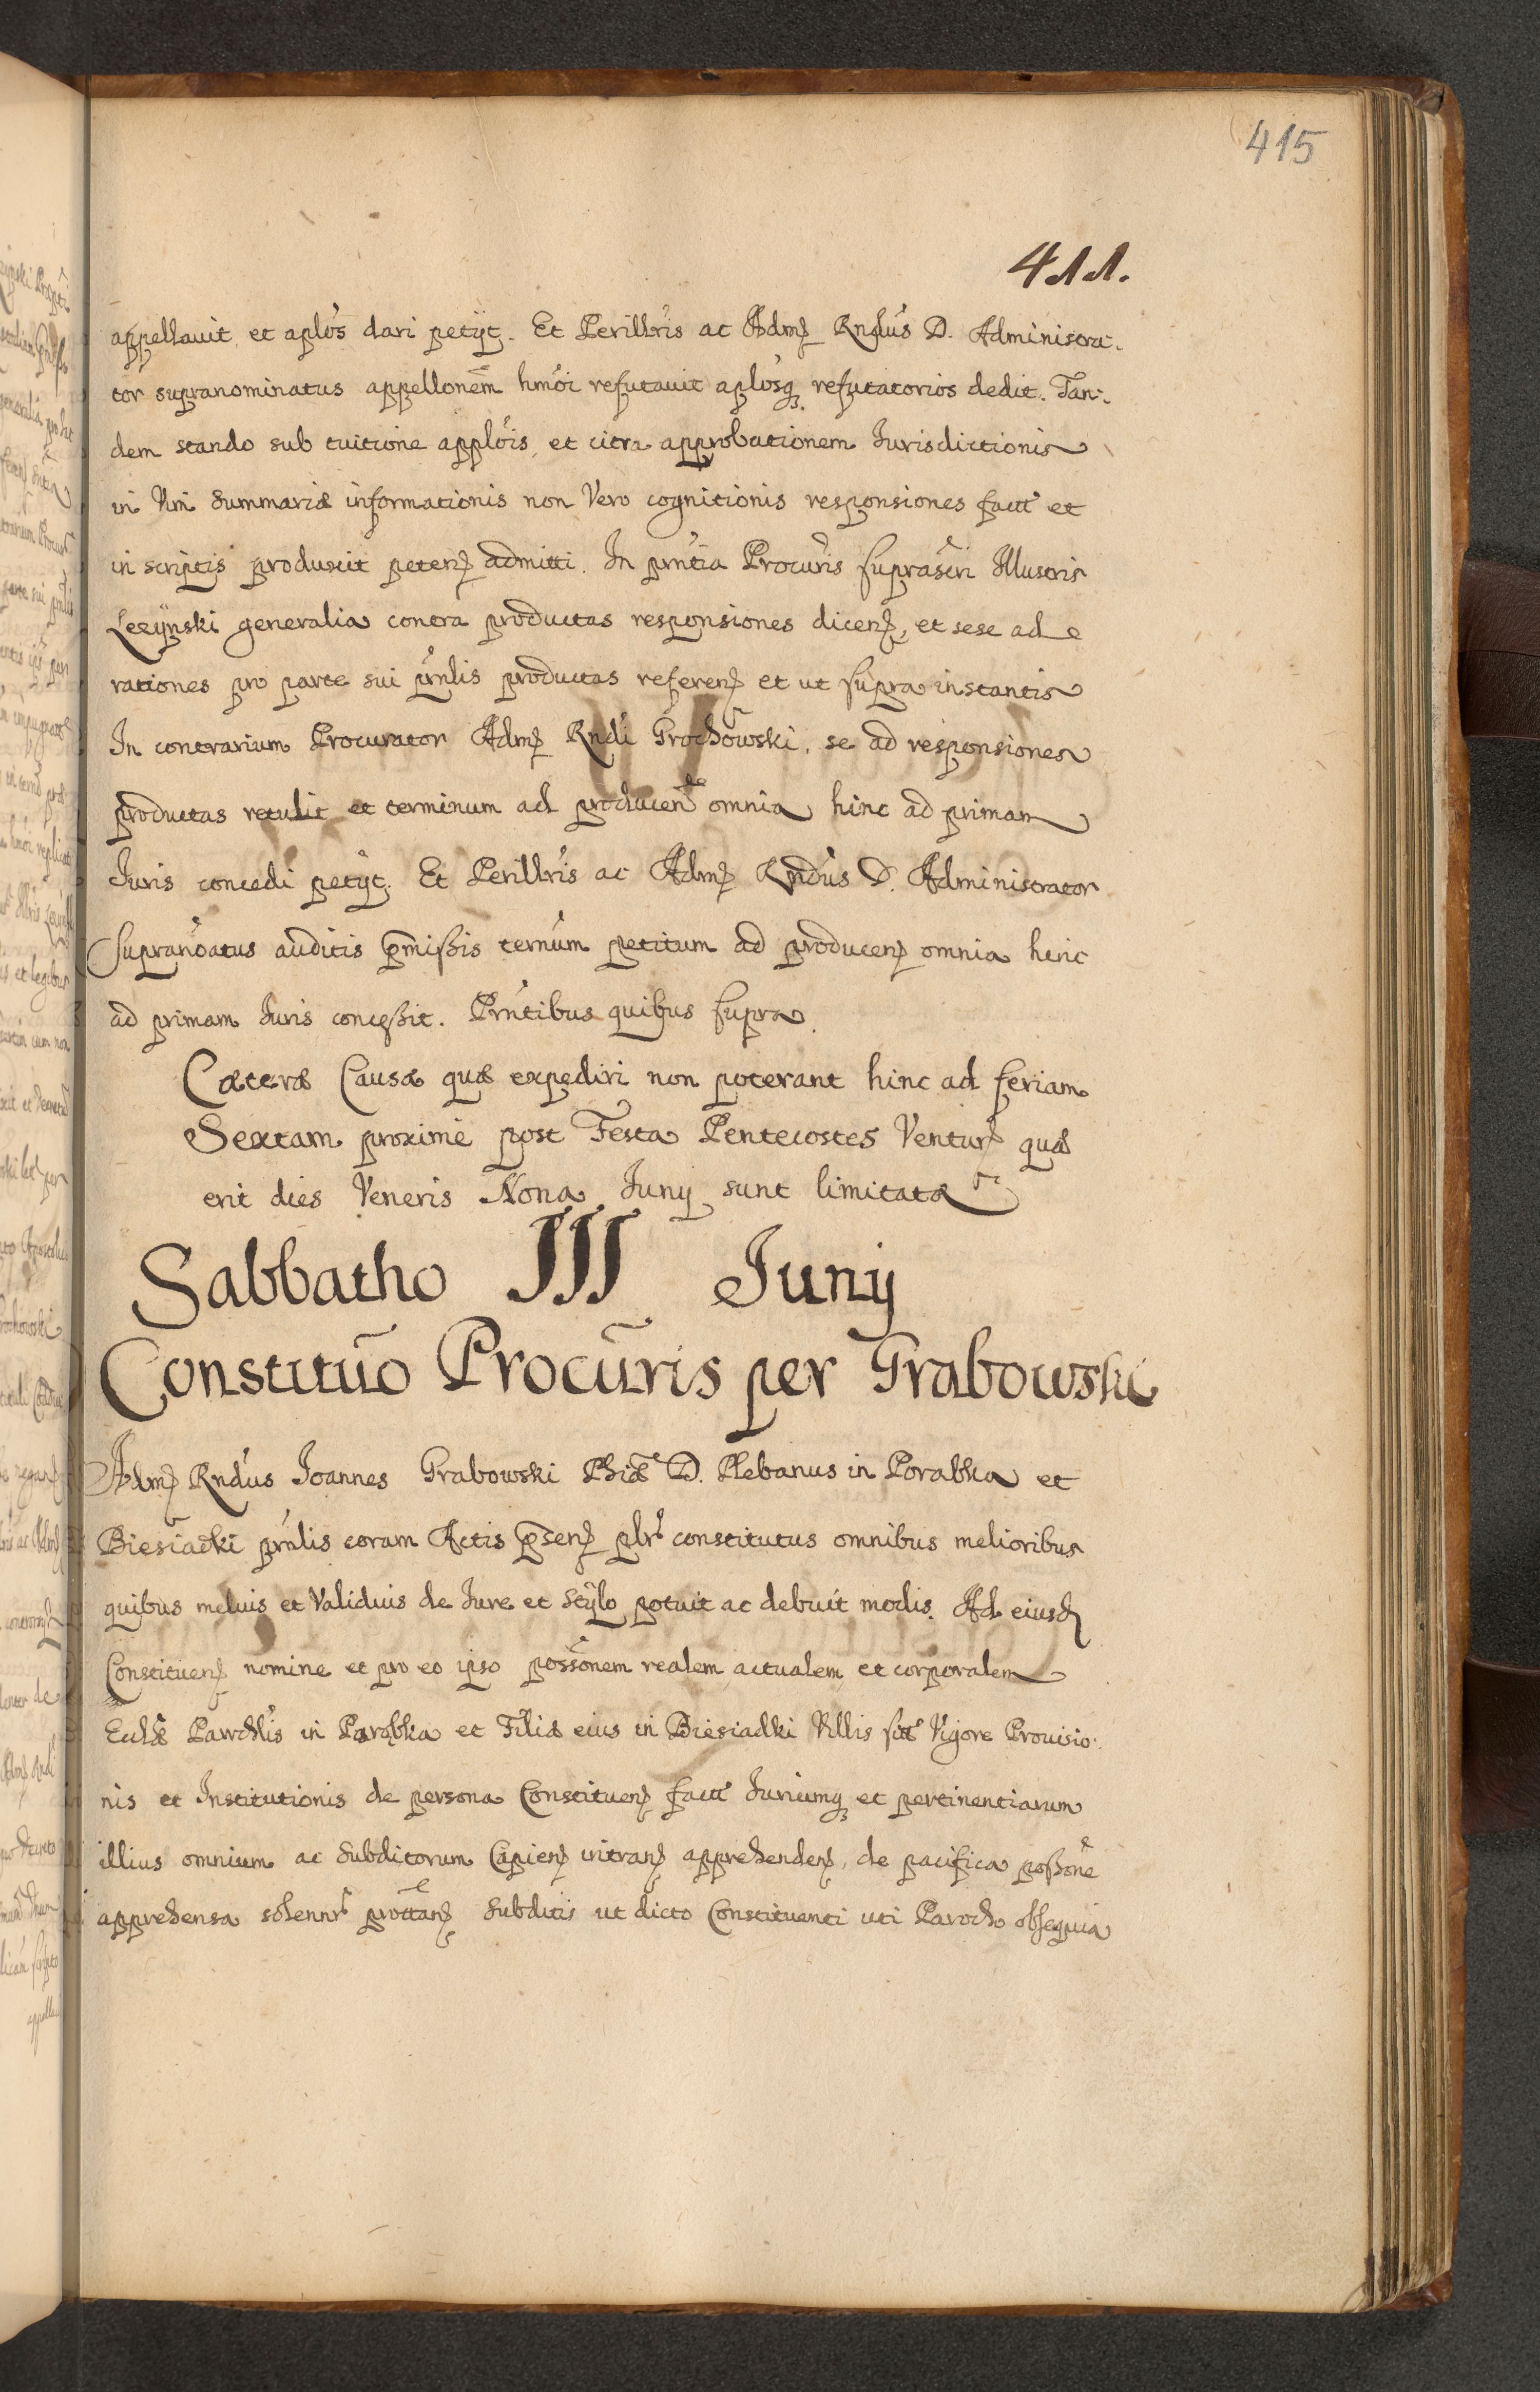 415
411.
appellauit et aplos dari petÿt. Et Perillris ac Adm Rndus D. Administra-
tor supranominatus appellonem hmoi refutauit aplosq refutatorios dedit. Tan-
dem stando sub tuitione applois, et citra approbationem Iurisdictionis
in Vim Summariæ informationis non Vero cognitionis responsiones fact et
in scriptis produxit peten admitti. In prntia Procuris suprascri Illustris
Lezÿnski generalia contra productas responsiones dicen, et sese ad
rationes pro parte sui prnlis productas referen et ut supra instantis
In contrarium Procurator Adm Rndi Grochowski, se ad responsiones
productas retulit et terminum ad producen omnia hinc ad primam
Iuris concedi petÿt. Et Perillris ac Adm Rndus D. Administrator
supranoatus auditis pmissis ternum petitum ad producen omnia hinc
ad primam Iuris concessit. Prntibus quibus supra.
Cæteræ Causæ quæ expediri non poterant hinc ad feriam
Sextam proximè post Festa Pentecostes Ventur quæ
erit dies Veneris Nona Iunij sunt limitatæ
Sabbatho III Iunij
Constituo Procuris per Grabowski
Adm Rndus Joannes Grabowski Phiæ D. Plebanus in Porabka et
Biesiadki prnlis coram Actis psen plr constitutus omnibus melioribus
quibus meluis et Validius de Iure et Stÿlo potuit ac debuit modis. Ad eiusd
Constituen nomine et pro eo ipso possonem realem actualem et corporalem
Ecclæ Parochlis in Porabka et Filiæ eius in Biesiadki Villis sit Vigore Prouisio-
nis et Institutionis de persona Constituen fact Iuriumq et pertinentiarum
illius omnium ac Subditorum Capien intran apprehenden, de pacifica possone
apprehensa solennr prottan Subditis ut dicto Constituenti uti Parocho obsequia